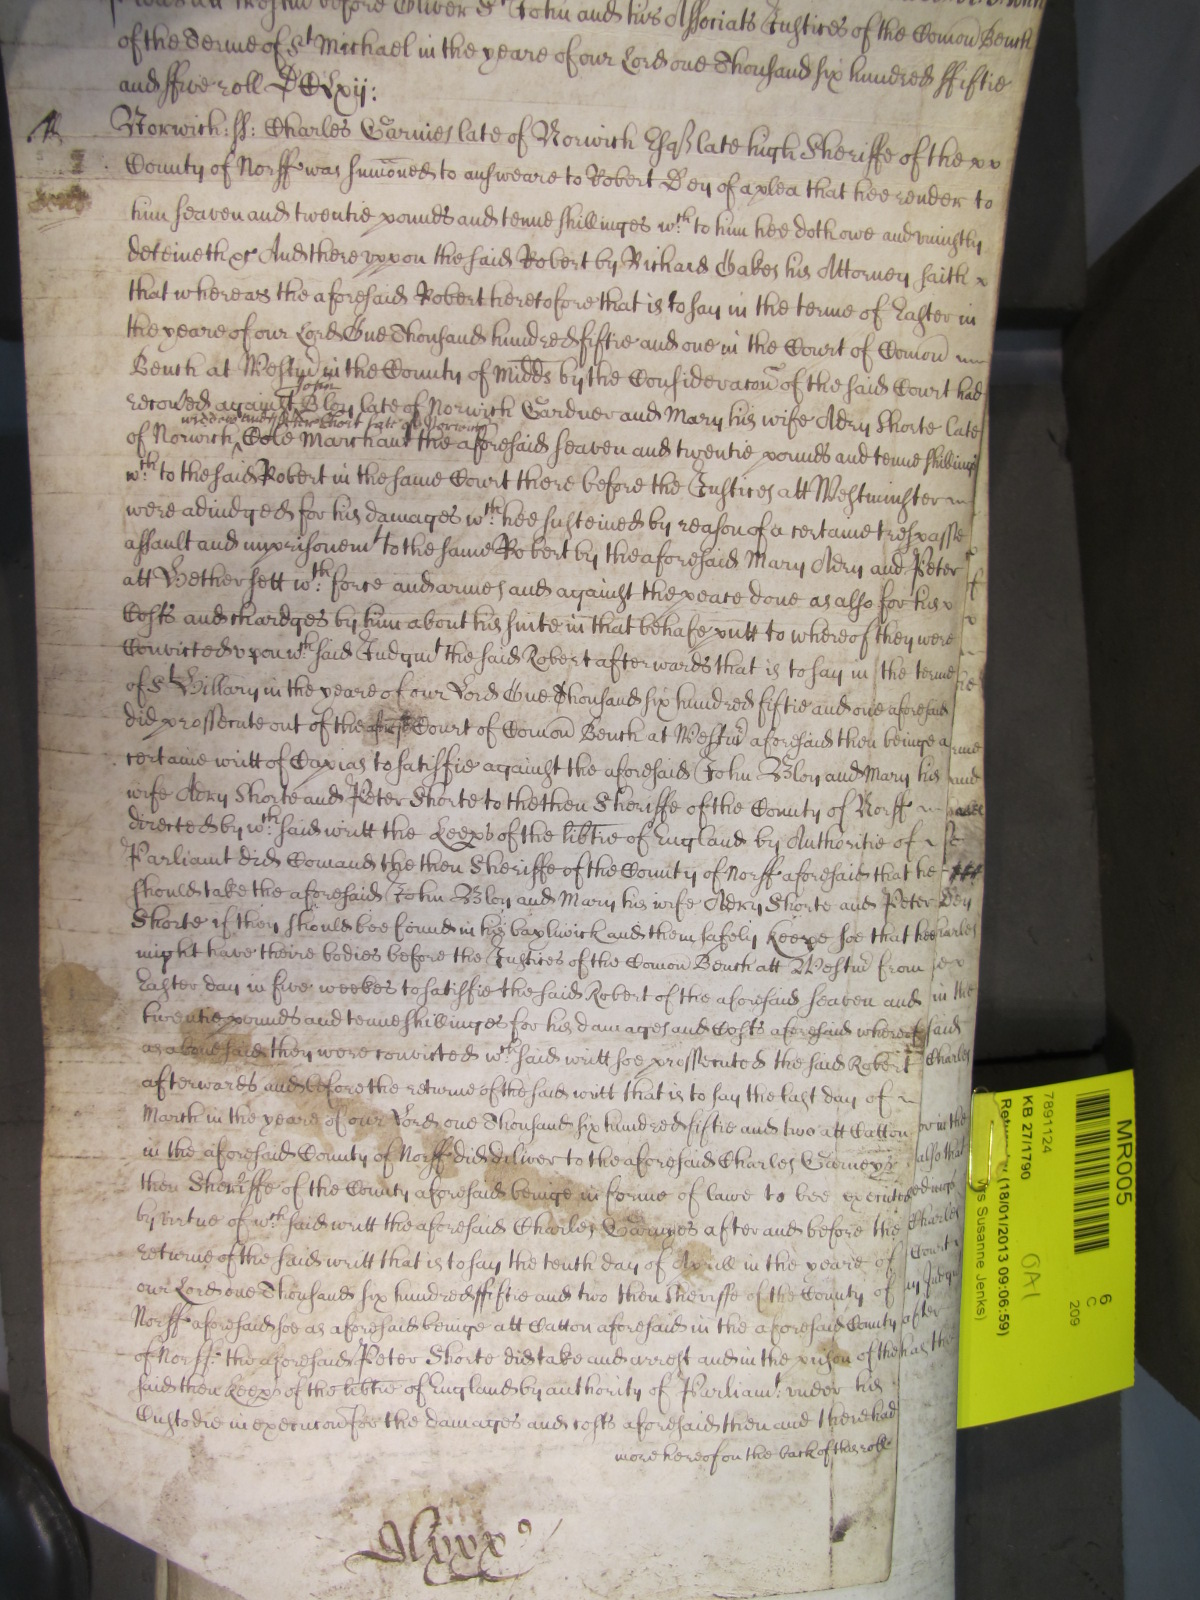 before Oliver St John and his Associats Justices of the Comon Bench
of the Terme of St Michael in the yeare of our Lord one Thousand six hundred ffiftie
and ffive roll DCLxij:
Norwich: ss: Charles Garnies late of Norwich Esqr late high Sheriffe of the
County of Norff was sumoned to answeare to Robert Dey of a plea that hee render to
him seaven and twentie pounds and tenne shillinges wth. to him hee doth owe and uniustly
deteineth &c And thereuppon the said Robert by Richard Oakes his Attorney saith
that whereas the aforesaid Robert heretofore that is to say in the terme of Easter in
the yeare of our Lord One Thousand hundred fiftie and one in the Court of Comon
Bench at Westmr in the County of Midds by the Consideracon of the said Court had
John
recoved against Bloy late of Norwich Gardner and Mary his wife Adry Shorte late
widdowe and Peter Short late of Norwich
of Norwich Cole Marchant the aforesaid seaven and twentie pounds and tenne shillings
wth. to the said Robert in the same Court there before the Justices att Westminster
were adiudged for his damages wth. hee susteined by reason of a certaine trespasse
assault and imprisonemt to the same Robert by the aforesaid Mary Adry and Peter
att Hethersett wth. force and armes and against the peace done as also for his
Costs and chardges by him about his suite in that behalfe putt to whereof they were
Convicted upon wth. said Judgmt the said Robert afterwards that is to say in the terme
of St Hillary in the yeare of our Lord One Thousand six hundred fiftie and one aforesaid
did prossecute out of the Court of Comon Bench at Westmr aforesaid then beinge a
certaine writt of Capias to satisfie against the aforesaid John Bloy and Mary his
wife Adry Shorte and Peter Shorte to the then Sheriffe of the County of Norff
directed by wth. said writt the Keeps of the libtie of England by Authoritie of
Parliamt did Comand the then Sheriffe of the County of Norff aforesaid that he
should take the aforesaid John Bloy and Mary his wife Adry Shorte and Peter
Shorte if they should bee found in his baylwick and them safely keepe soe that hee
might have theire bodies before the Justices of the Comon Bench att Westmr from
Easter day in five weekes to satisfie the said Robert of the aforesaid seaven and
twentie pounds and tenne shillinges for his damages and Costs aforesaid whereof
as abovesaid they were convicted wth. said writt soe prossecuted the said Robert
afterwards and before the returne of the said writt that is to say the last day of
March in the yeare of our Lord one Thousand six hundred fiftie and two att Catton
in the aforesaid County of Norff did deliver to the aforesaid Charles Garneys
then Sheriffe of the County aforesaid beinge in forme of lawe to bee executed
by virtue of wth. said writt the aforesaid Charles Garnyes after and before the
returne of the said writt that is to say the tenth day of Aprill in the yeare of
our Lord one Thousand six hundred ffiftie and two then Sheriffe of the County of
Norff aforesaid soe as aforesaid beinge att Catton aforesaid in the aforesaid County
of Norff: the aforesaid Peter Shorte did take and arrest and in the prison of the
said then Keeps of the libtie of England by authority of Parliamt: under his
Custodie in execucon for the damages and costs aforesaid then and there had
more hereof on the back of this roll
Dey
Charles
in the
said
Charles
also that
Charles
Court
after
MR005
6
C
209
7891124
KB 27/1790
(18/01/2013 09:06:59)
Susanne Jenks)